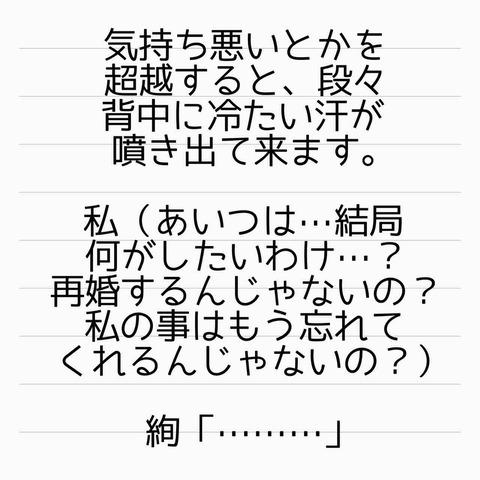 気持ち悪いとかを
超越すると、段々
背中に冷たい汗が
噴き出て来ます。
私（あいつは…結局
何がしたいわけ…？
再婚するんじゃないの？
私の事はもう忘れて
くれるんじゃないの？）
絢「………」